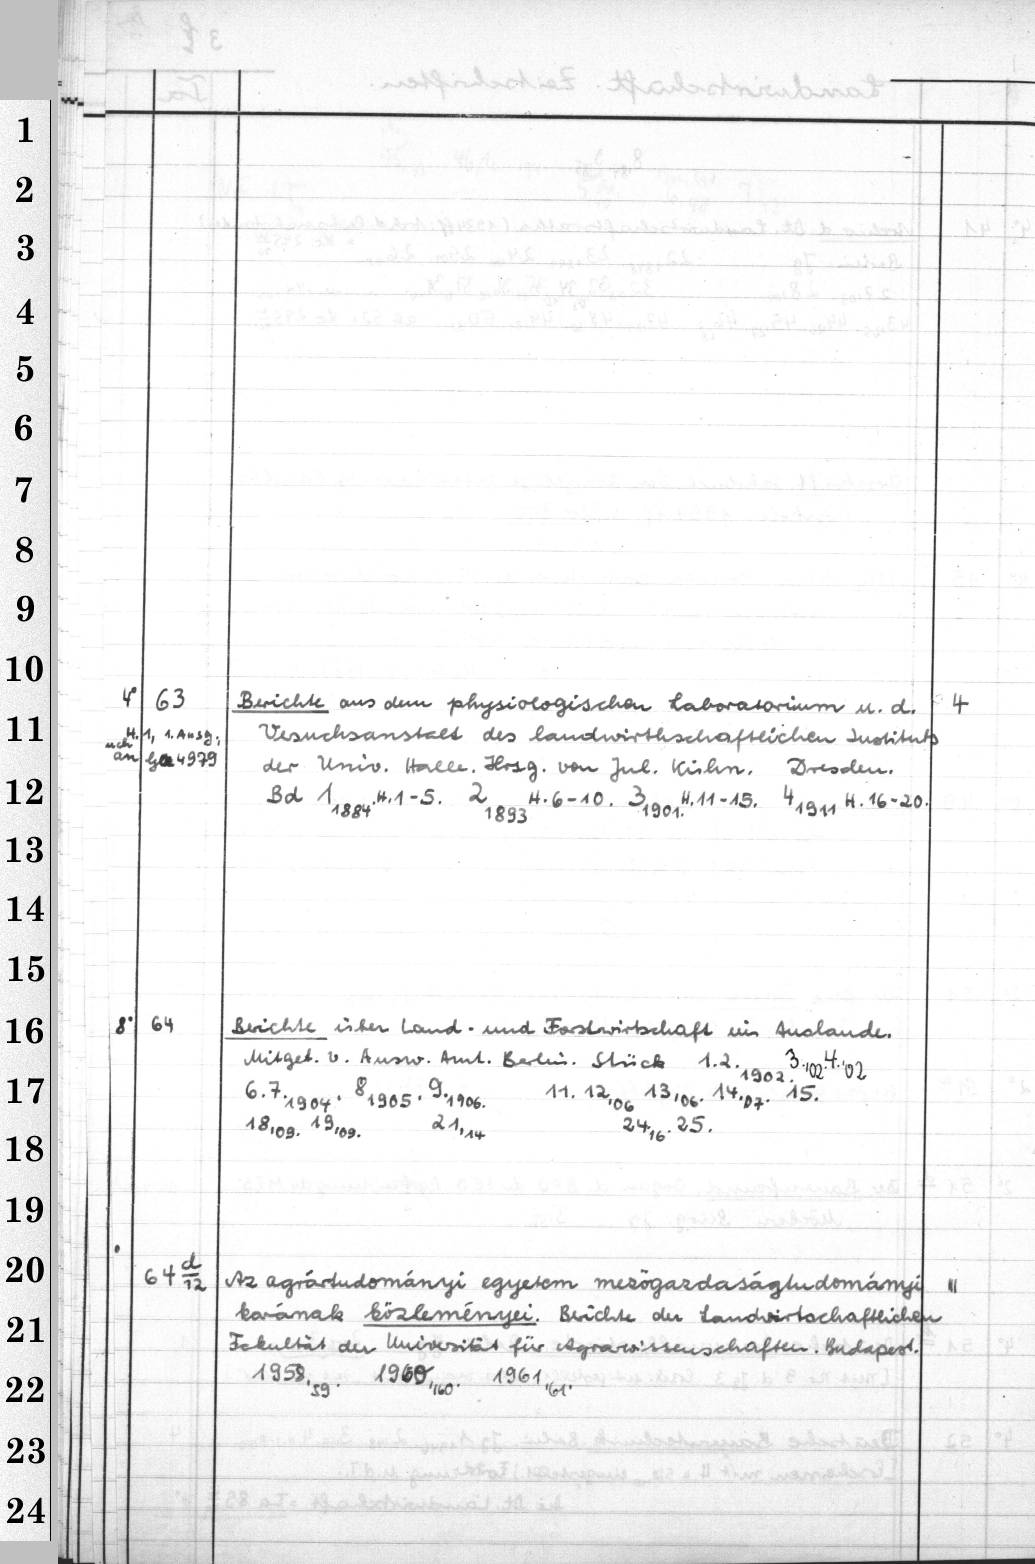 1
2
3
4
5
6
7
8
9
10
11
12
13
14
15
16
17
18
19
20
21
22
23
24
4° 63 Berichte aus dem physiologischen Laboratorium u. d. 4
H. 1, 1. Ausg.; Vesuchsanstalt des landwirthschaftlichen Instituts
auch an 4979 der Univ. Halle. Hrsg. von Jul. Kühn. Dresden.
Bd 1 1884. H. 1-5. 2 1893 H. 6-10. 3 1901. H. 11-15. 4 1911 H. 16-20.
8° 64 Berichte über Land- und Forstwirtschaft im Auslande.
Mitget. v. Ausw. Amt. Berlin. Stück 1. 2. 1902. 3.,02. 4.'02
6. 7. 1904. 8 1905. 9. 1906. 11. 12,06 13,06. 14.07. 15.
18,09. 19,09. 21,14 24 16. 25.
64 d/12 Az agrártudományi egyetem mezögazdaságtudományi "
karának közleményei. Berichte der Landwirtschaftlichen
Fakultät der Universität für Agrarwissenschaften. Budapest.
1958,'59. 1960,'60. 1961,'61.